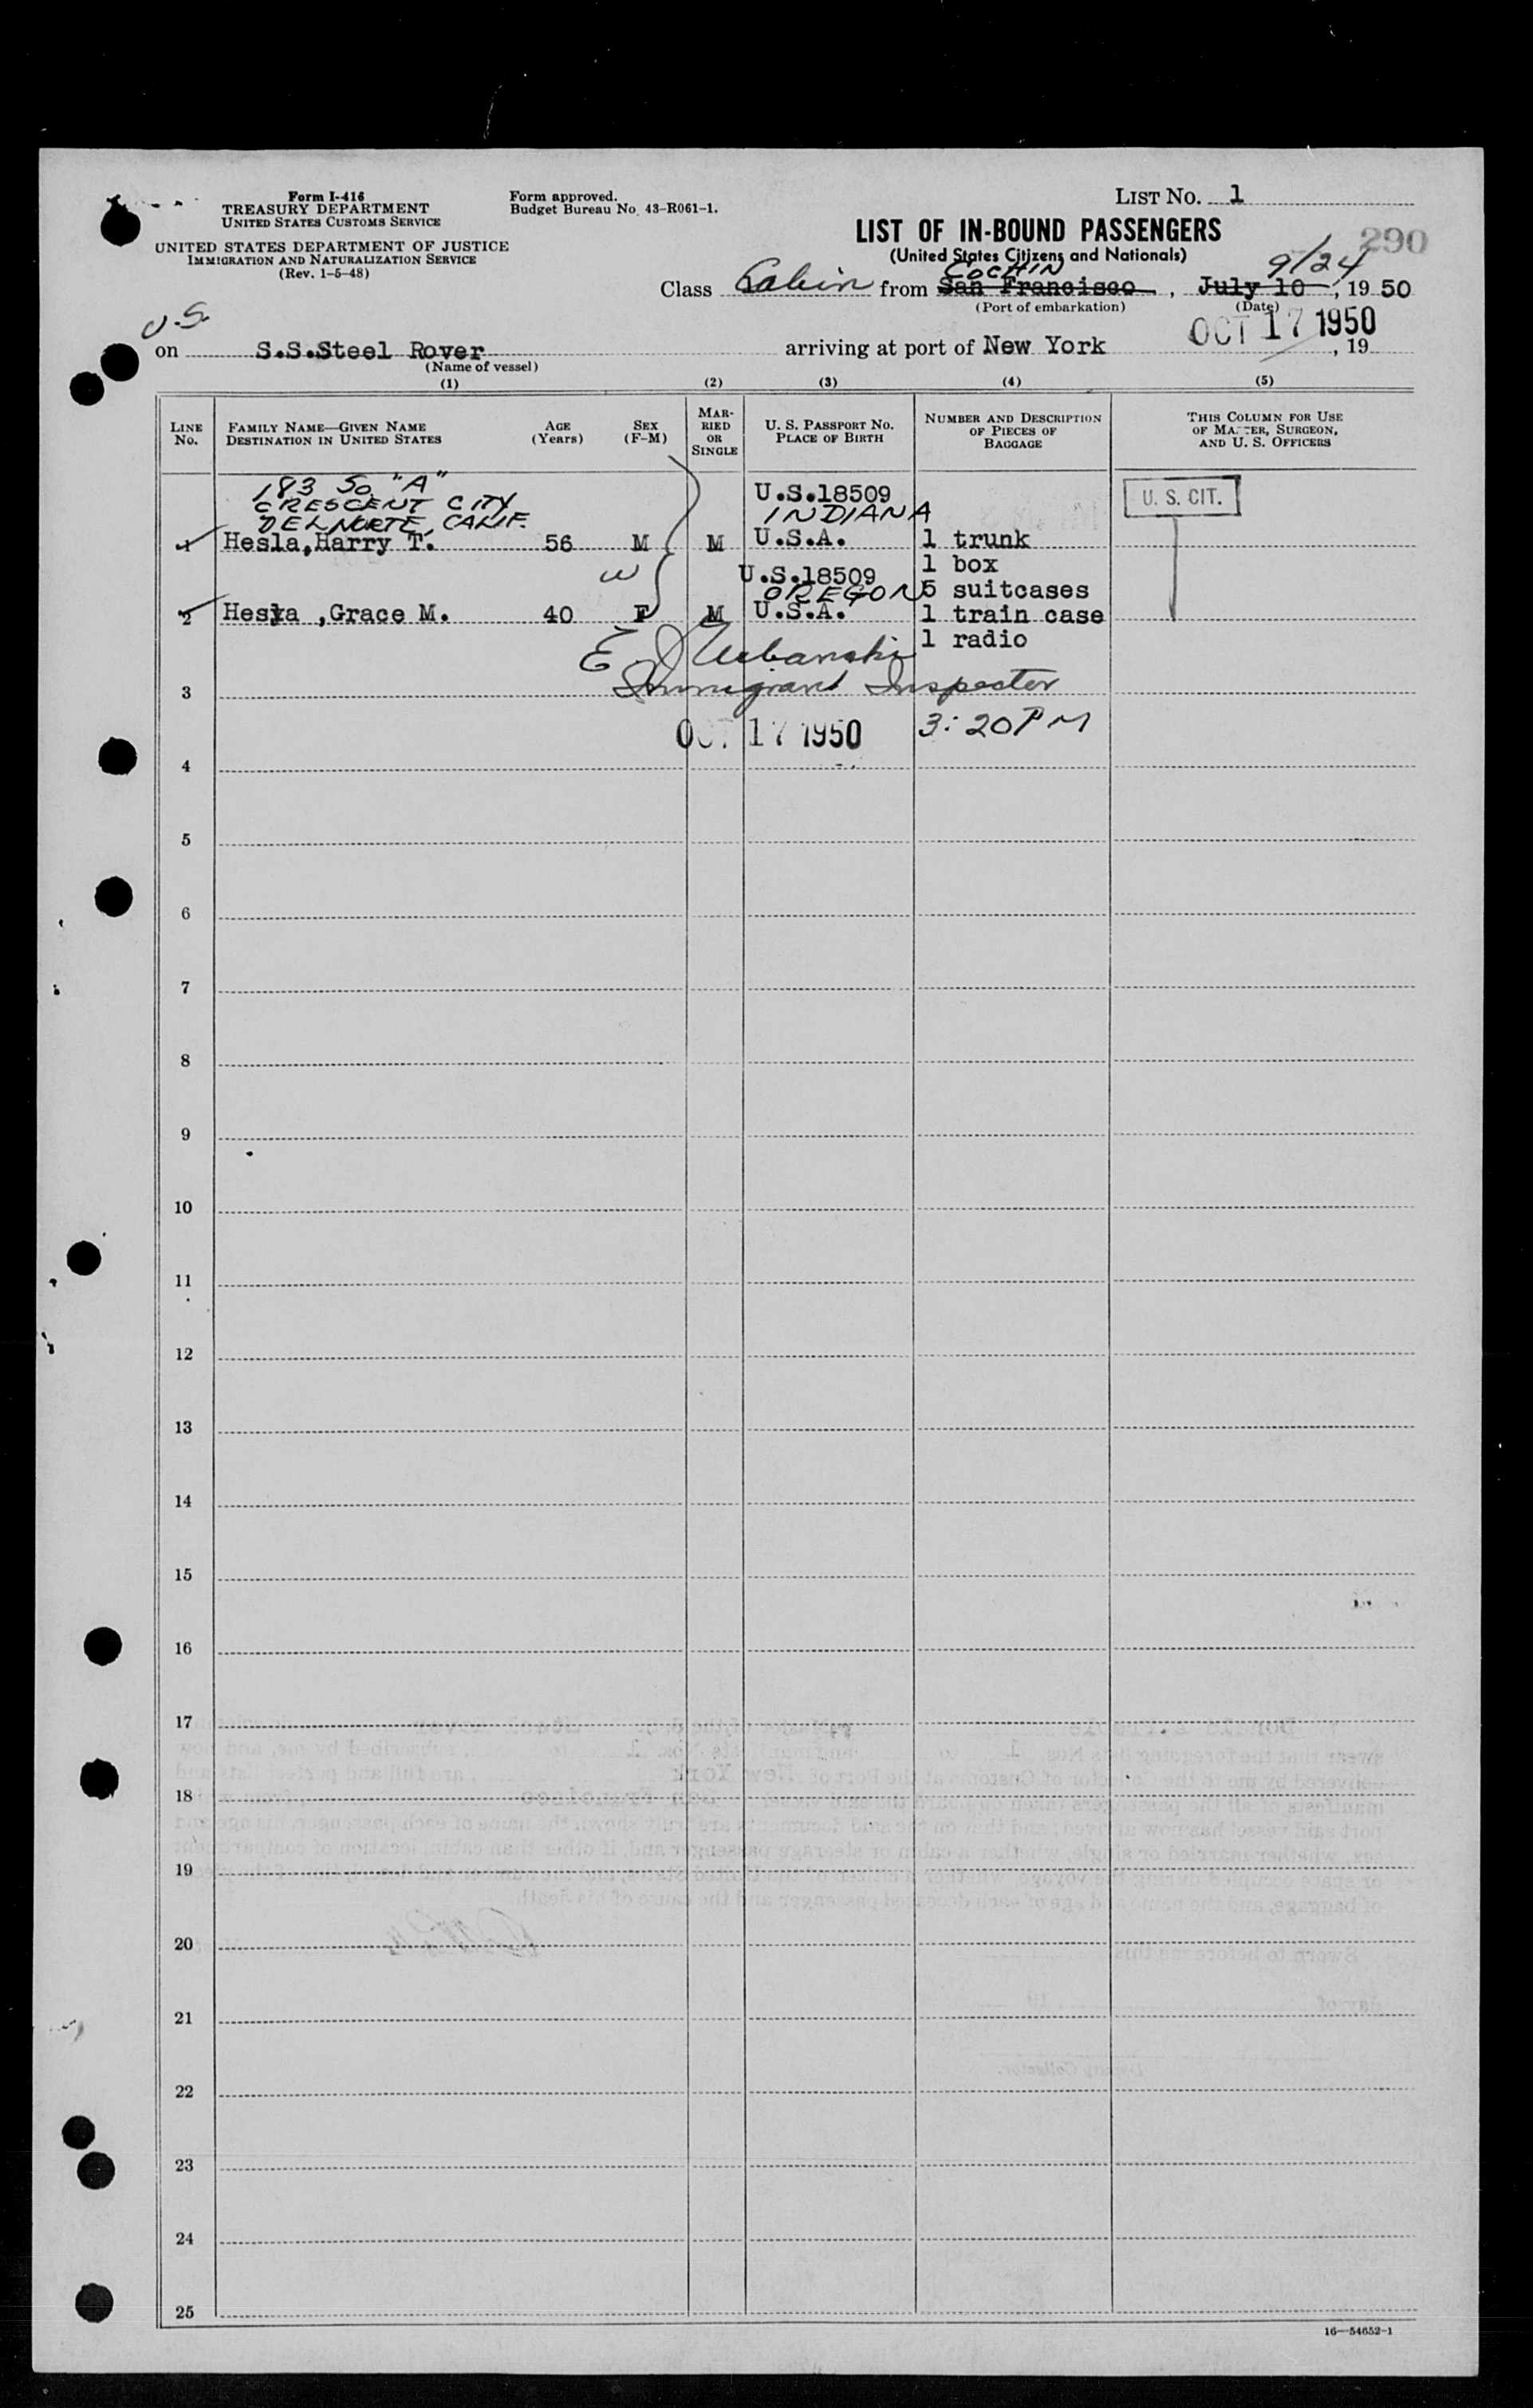 Form I-416
TREASURY DEPARTMENT
UNITED STATES CUSTOMS SERVICE
UNITED STATES DEPARTMENT OF JUSTICE
IMMIGRATION AND NATURALIZATION SERVICE
(Rev. 1-5-48)
Form approved.
Budget Bureau No. 43-R061-1.
LIST No. 1
LIST OF IN-BOUND PASSENGERS
290
(United States Citizens and Nationals)
COCHIN 9/24
Class Cabin from San Francisco, July 10, 19 50
(Port of embarkation) (Date)
OCT 17 1950
U.S.
on S.S.Steel Rover arriving at port of New York , 19
(Name of vessel)
(1) (2) (3) (4) (5)
LINE No. FAMILY NAME—GIVEN NAME DESTINATION IN UNITED STATES AGE (Years) SEX (F-M) MARRIED OR SINGLE U. S. PASSPORT No. PLACE OF BIRTH NUMBER AND DESCRIPTION OF PIECES OF BAGGAGE THIS COLUMN FOR USE OF MASTER, SURGEON, AND U. S. OFFICERS
183 So "A"
CRESCENT CITY
DEL NORTE, CALIF.
U.S.18509
INDIANA
U. S. CIT.
1 Hesla,Harry T. 56 M M U.S.A. 1 trunk
1 box
W U.S.18509
OREGON 5 suitcases
2 Hesla ,Grace M. 40 F M U.S.A. 1 train case
1 radio
E J Urbanski
3 Immigrant Inspector
OCT 17 1950 3:20 PM
4
5
6
7
8
9
10
11
12
13
14
15
16
17
18
19
20
21
22
23
24
25
16—54652-1